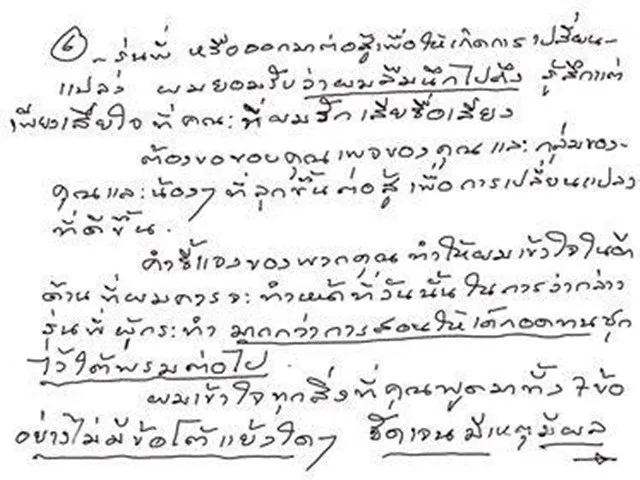 ๖
- รุ่นพี่ หรือออกมาต่อสู้เพื่อให้เกิดการเปลี่ยน-
แปลง ผมยอมรับว่าผมลืมนึกไปถึง รู้สึกแต่
เพียงเสียใจ ที่ คณะ ที่ผมรัก เสียชื่อเสียง
ต้องขอขอบคุณเพจของคุณ และ กลุ่มของ-
คุณและน้องๆ ที่ลุกขึ้นต่อสู้ เพื่อการเปลี่ยนแปลง
ที่ดีขึ้น.
คำชี้แจงของพวกคุณ ทำให้ผมเข้าใจในอีก
ด้าน ที่ผมควรจะทำหน้าที่วันนั้น ในการว่ากล่าว
รุ่นพี่ ผู้กระทำ มากกว่าการสอนให้เด็กอดทนซุก
ไว้ใต้พรมต่อไป.
ผมเข้าใจทุกสิ่งที่คุณพูดมาทั้ง 7 ข้อ
อย่างไม่มีข้อโต้แย้งใดๆ ชัดเจน มีเหตุมีผล